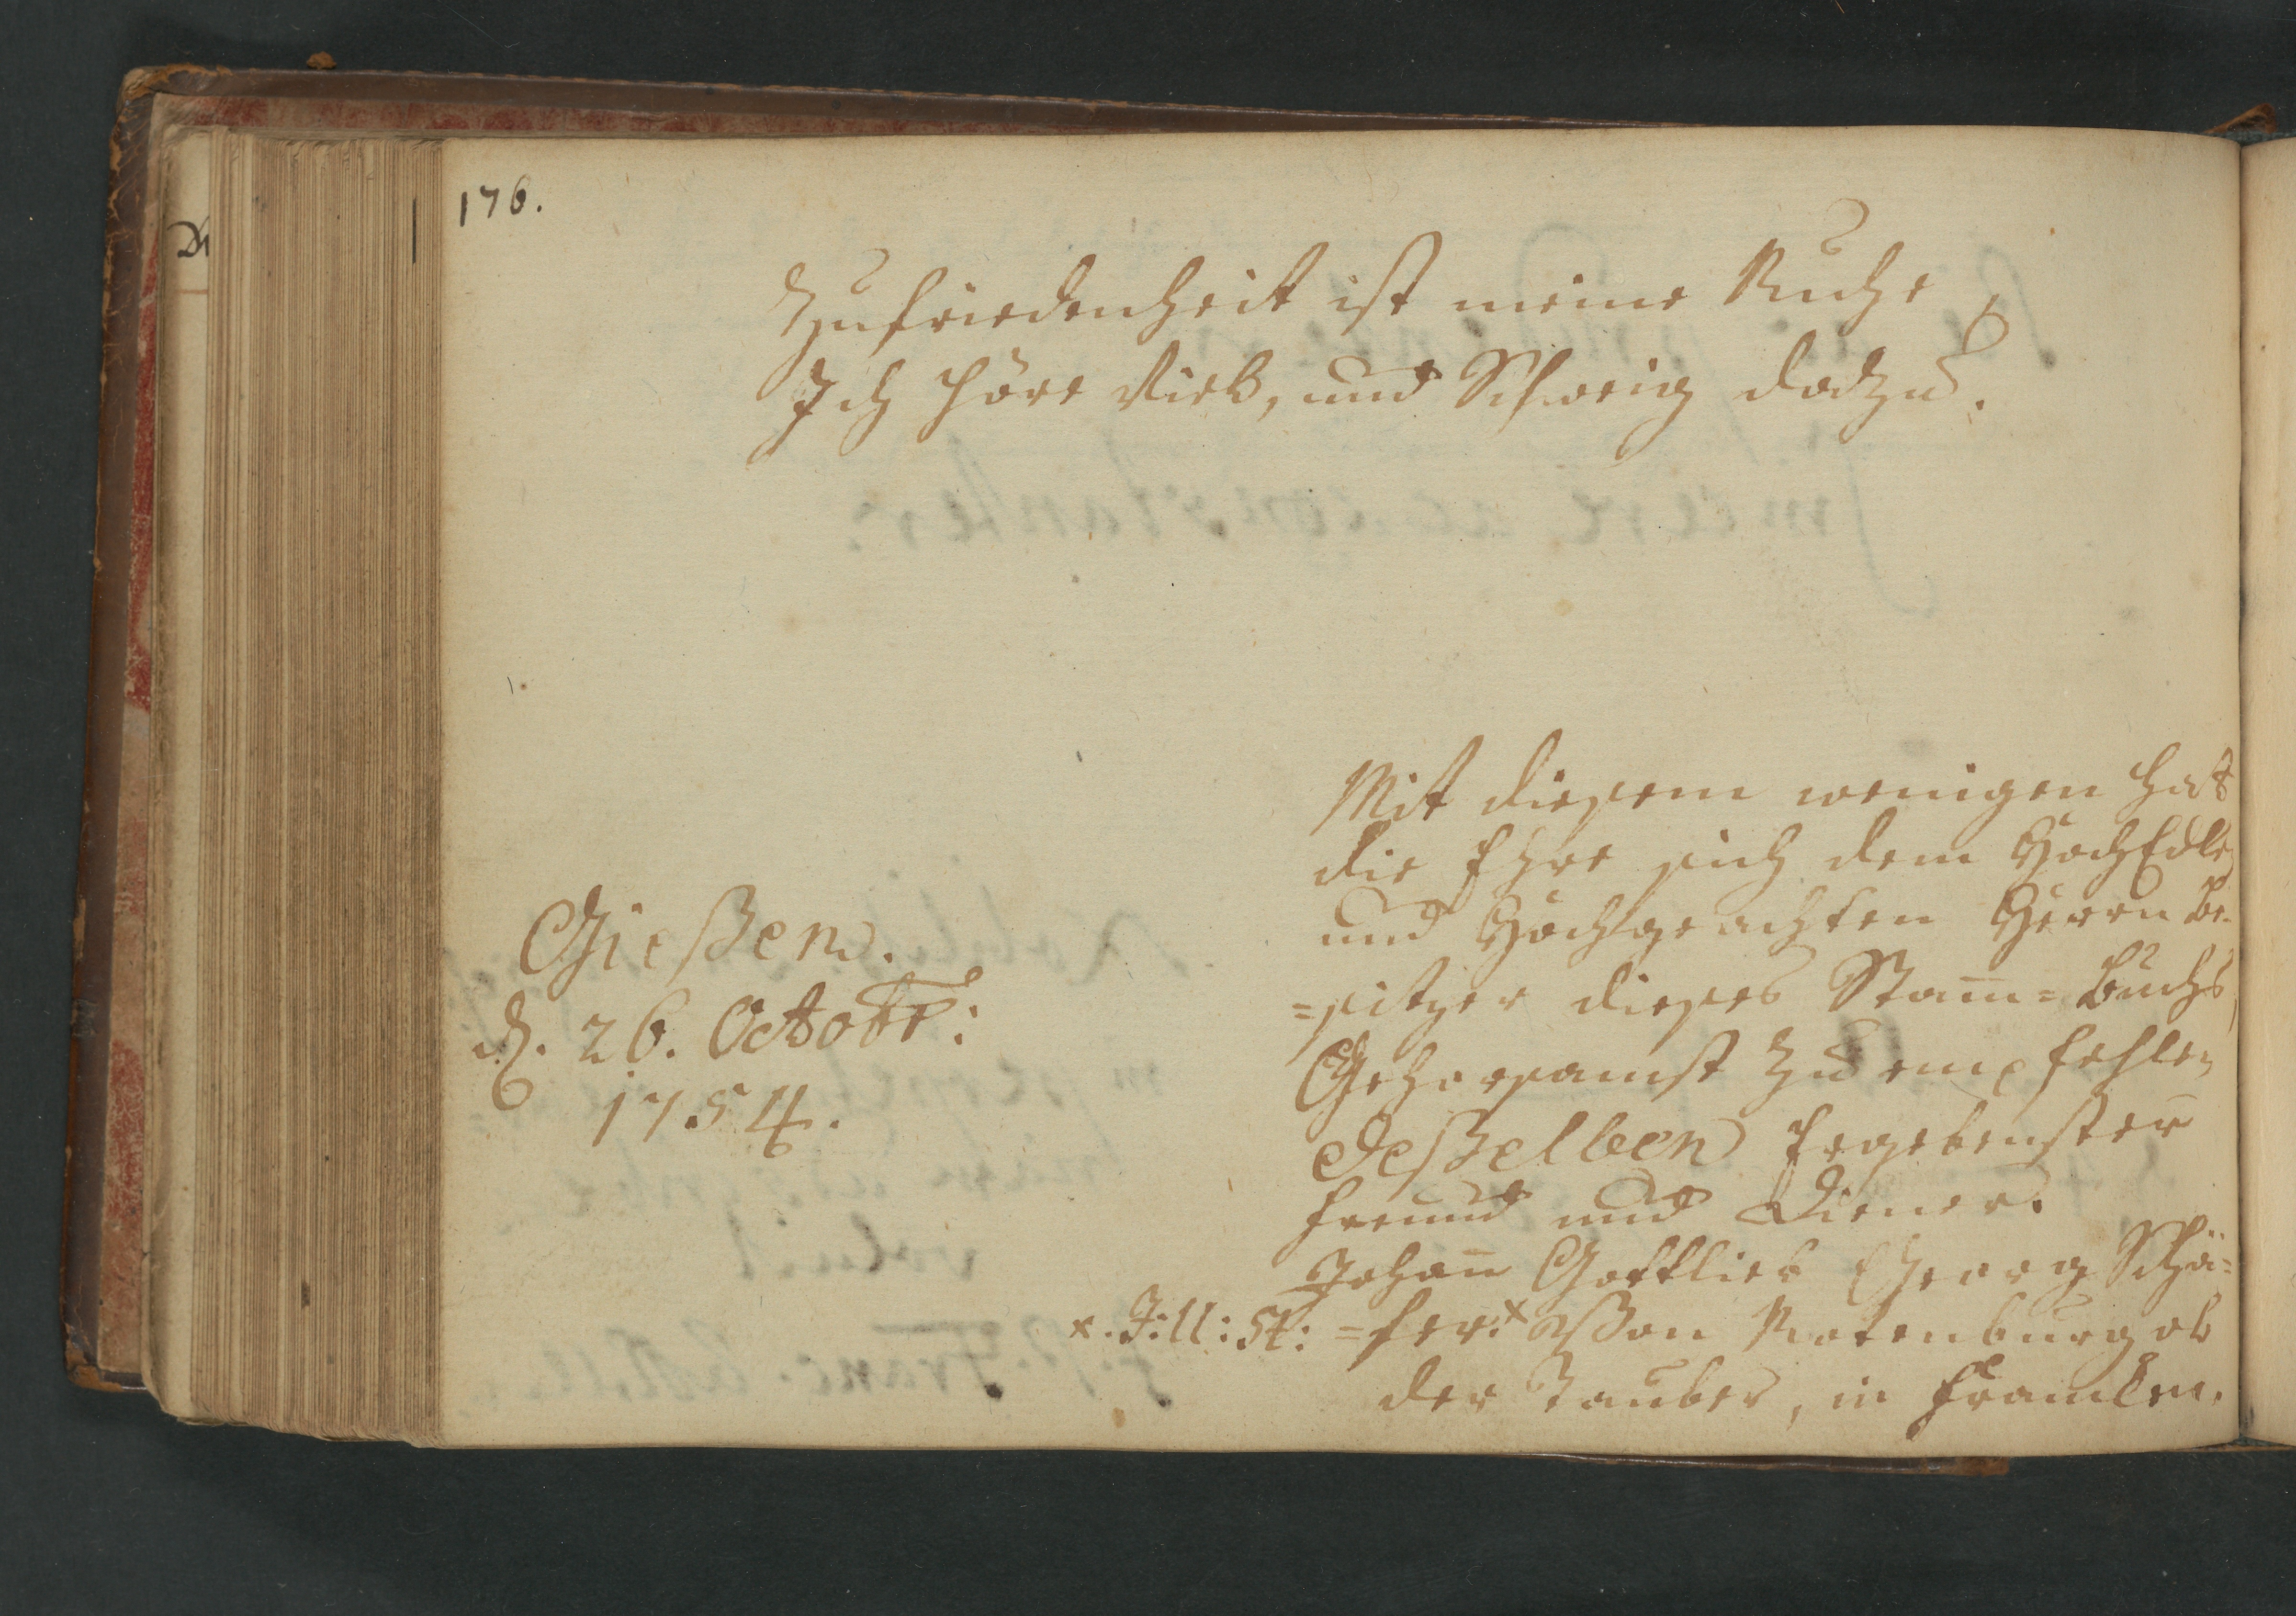 176.
Zufriedenheit ist meine Ruhe,
Ich höre Viel, und Schweig dadzu.
Mit diesem wenigen hat
die Ehre sich dem HochEdlen
und Hochgeachten Herrn Be-
=sitzer dieses Stam̅=Buchs,
Gehorsamst zu empfehlen
Deßelben Ergebenster
freund und Diener.
Johan̅ Gottlieb Georg Schä=
=fer.x Von Rotenburg ob
der Tauber, in Francken.
x. J: U: St:
Gießen.
d. 26. Octobr:
1754.